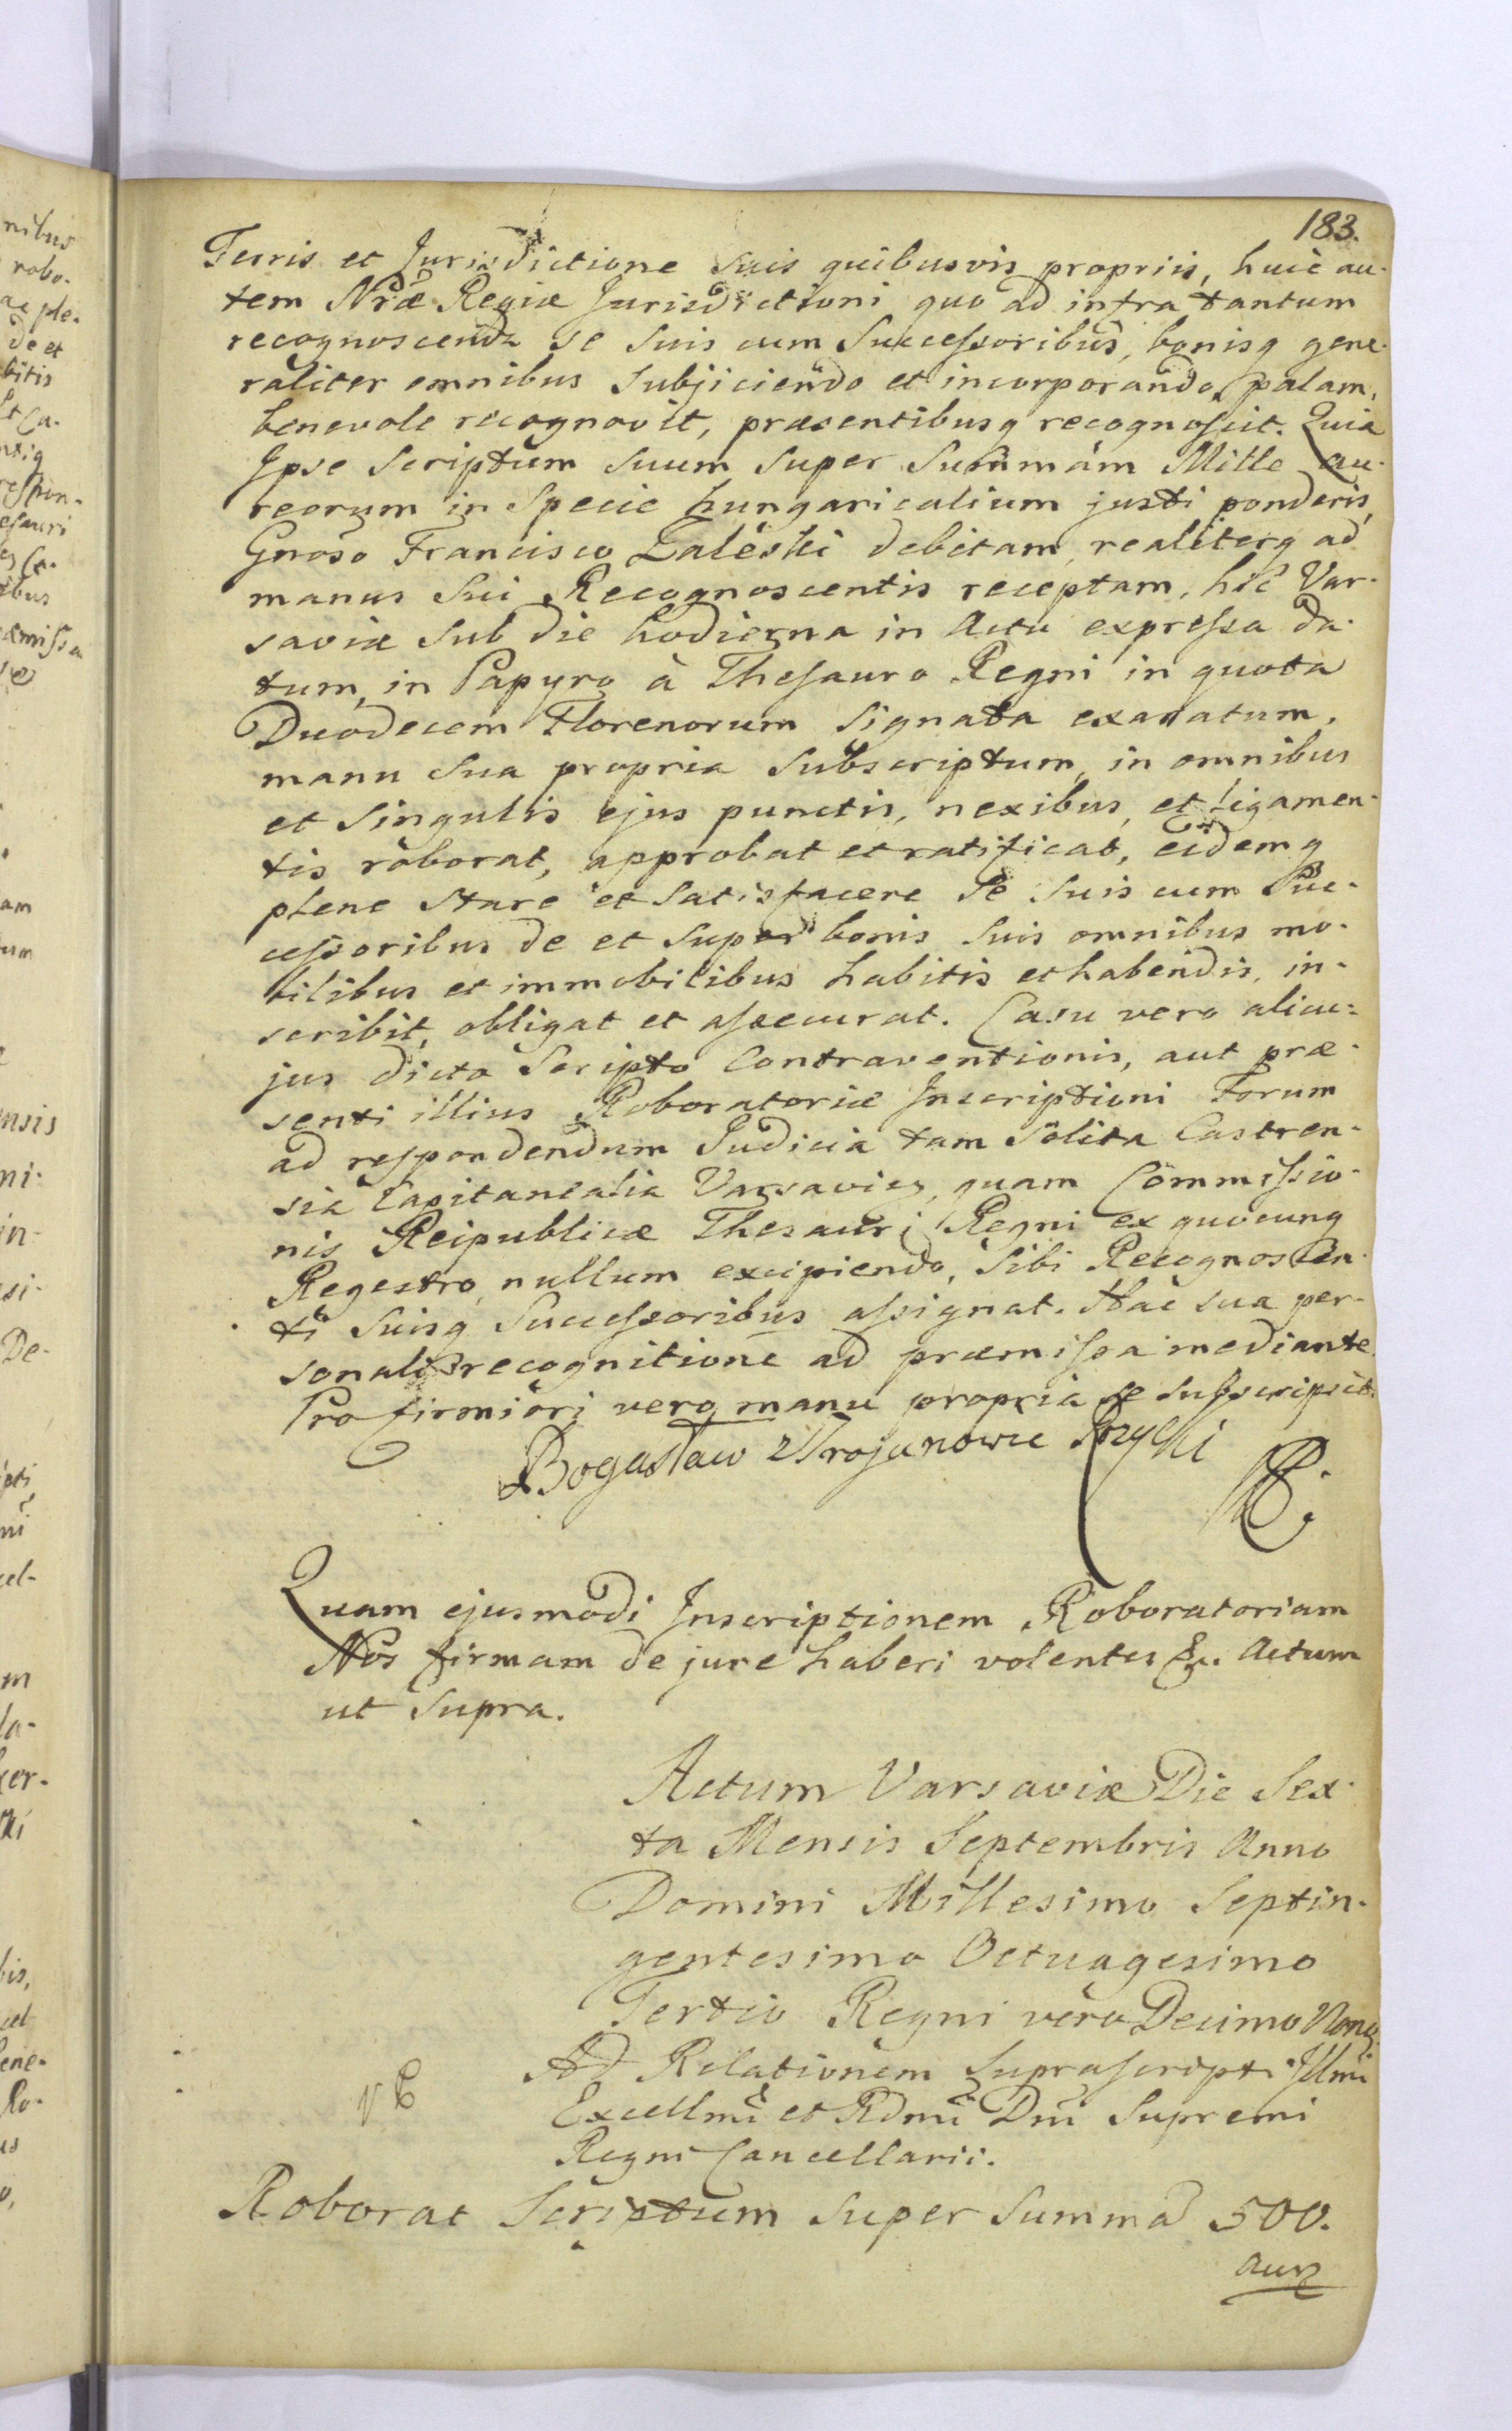 183.
Terris et Jurisdictione suis quibusvis propriis, huic au-
tem Nrae Regiae Jurisdictioni quo ad infra tantum
recognoscenda se suis cum Successoribus, bonisq gene-
raliter omnibus subjiciendo et incorporando, palam,
benevole recognovit, praesentibusq recognoscit. Quia
Ipse Scriptum suum super Summam Mille au-
reorum in Specie hungaricalium justi ponderis,
Gnoso Francisco Zaleski debitam, realiterq ad
manus sui Recognoscentis receptam, hic Var-
saviae sub die hodierna in Actu expressa da-
tum, in Papyro à Thesauro Regni in quota
Duodecem Florenorum signata exaratum,
manu sua propria subscriptum, in omnibus
et singulis ejus punctis, nexibus, et ligamen-
tis roborat, approbat et ratificat, eidemq
plene stare et satisfacere se suis cum Suc-
cessoribus de et super bonis suis omnibus mo-
bilibus et immobilibus habitis et habendis, in-
scribit, obligat et assecurat. Casu vero alicu-
jus dicto Scripto Contraventionis, aut prae-
senti illius Roboratoriae Inscriptioni Forum
ad respondendum Judicia tam solita Castren-
sia Capitanealia Varsavien, quam Commissio-
nis Reipublicae Thesauri Regni ex quocunq
Regestro, nullum excipiendo, sibi Recognoscen-
ti suisq Successoribus assignat. Hac sua per-
sonali recognitione ad praemissa mediante.
Pro firmiori vero manu propria se subscripsit.
Bogusław Trojanowic
Quam ejusmodi Inscriptionem Roboratoriam
Nos firmam de jure haberi volentes &c. Actum
ut supra.
Actum Varsaviae Die Sex-
ta Mensis Septembris Anno
Domini Millesimo Septin-
gentesimo Octuagesimo
Tertio Regni vero Decimo Nono.
Ad Relationem Suprascripti Illmi
Excellmi et Rdmi Dni Supremi
Regni Cancellarii.
Roborat Scriptum super summa 500.
aur